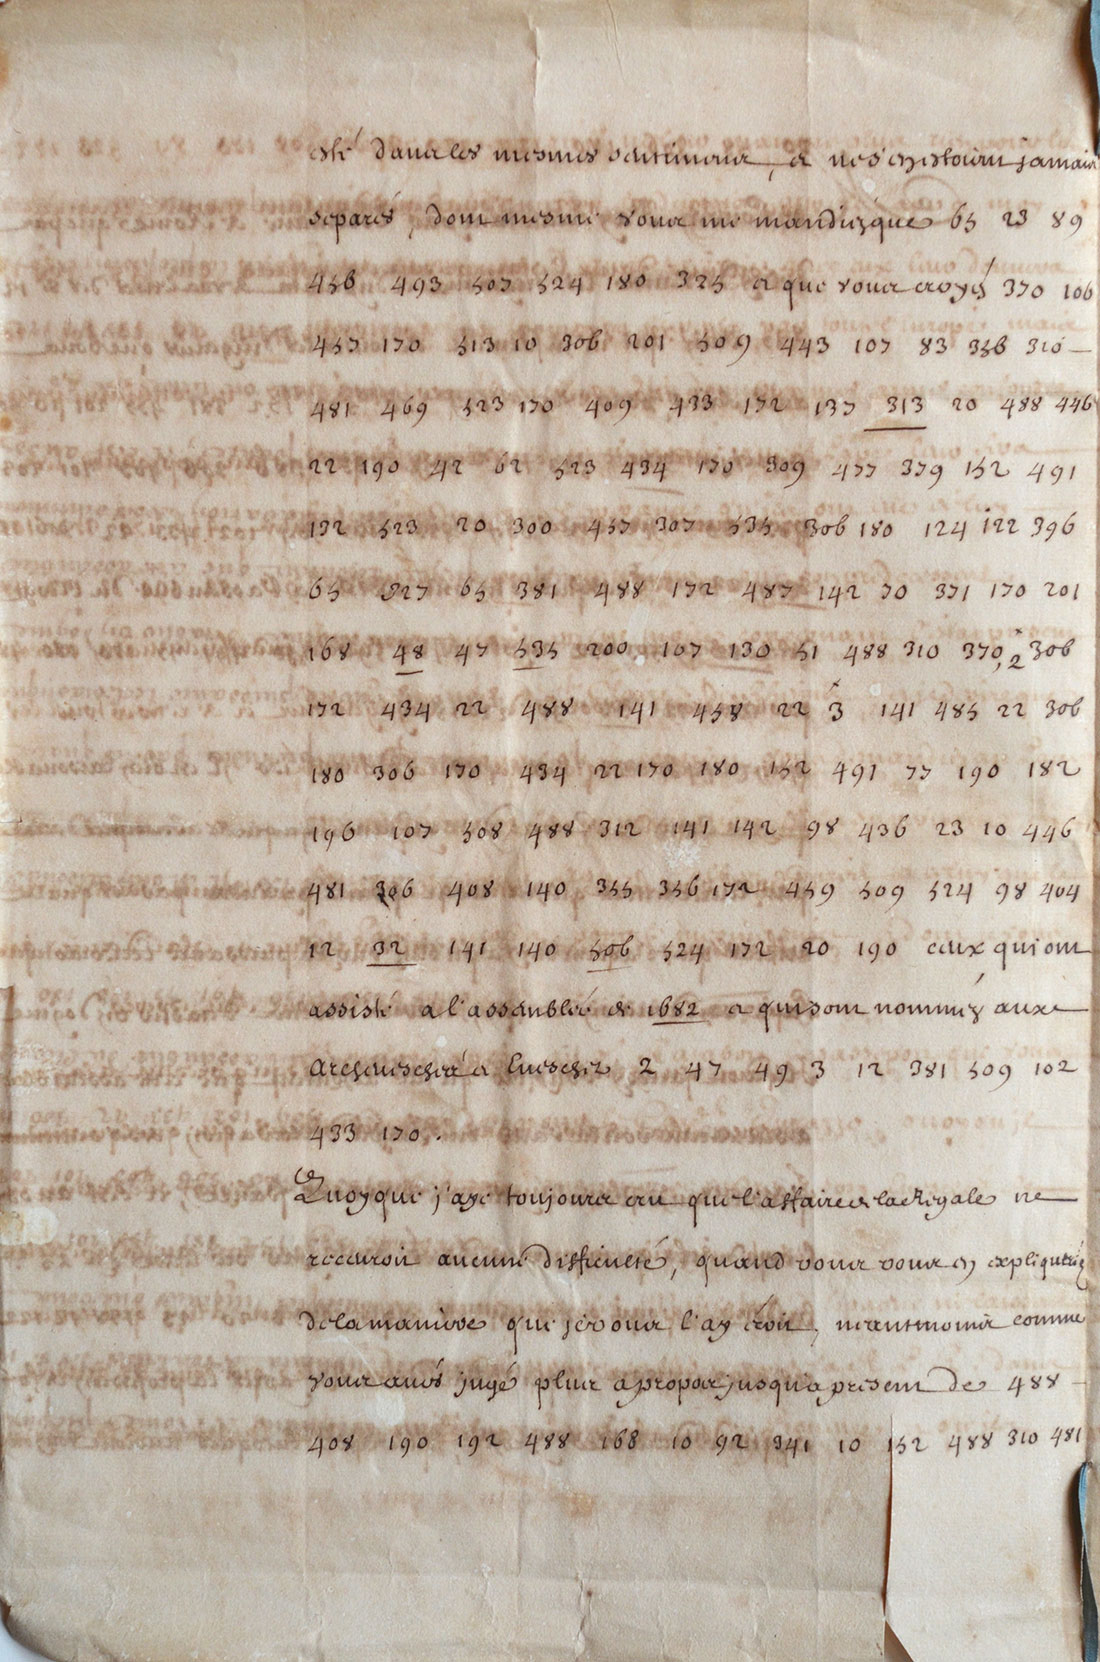 esté dans les mesmes sentimens, et ne s'en estoient jamais
separés, dont mesme vous me mandiez que 65 23 89
456 493 507 524 180 325 et que vous croyés 370 106
457 170 513 10 306 201 509 443 107 83 356 310 —
481 469 523 170 409 433 172 137 313 20 488 446
22 190 42 62 523 434 170 309 477 379 152 491
132 523 20 300 457 307 535 306 180 124 122 396
65 527 65 381 488 172 487 142 70 371 170 201
168 48 47 535 200 107 130 51 488 310 370, 2 306
172 434 22 488 141 458 22 3 141 485 22 306
180 306 170 434 22 170 180 152 491 77 190 182
196 107 508 488 312 141 142 98 436 23 10 446
481 306 408 140 355 356 172 459 509 524 98 404
12 32 141 140 506 524 172 20 190 ceux qui ont
assisté a l'assemblée de 1682 et qui sont nommez aux
Archeveschés et Eveschez 2 47 49 3 12 381 509 102
433 170.
Quoyque j'aye toujours cru que l'affaire de la Regale ne
recevroit aucune difficulté, quand vous vous en expliqueriez
de la maniere que je vous l'ay écrit, neantmoins comme
vous avés jugé plus a propos jusqu'a present de 488
408 190 192 488 168 10 92 341 10 152 488 310 481